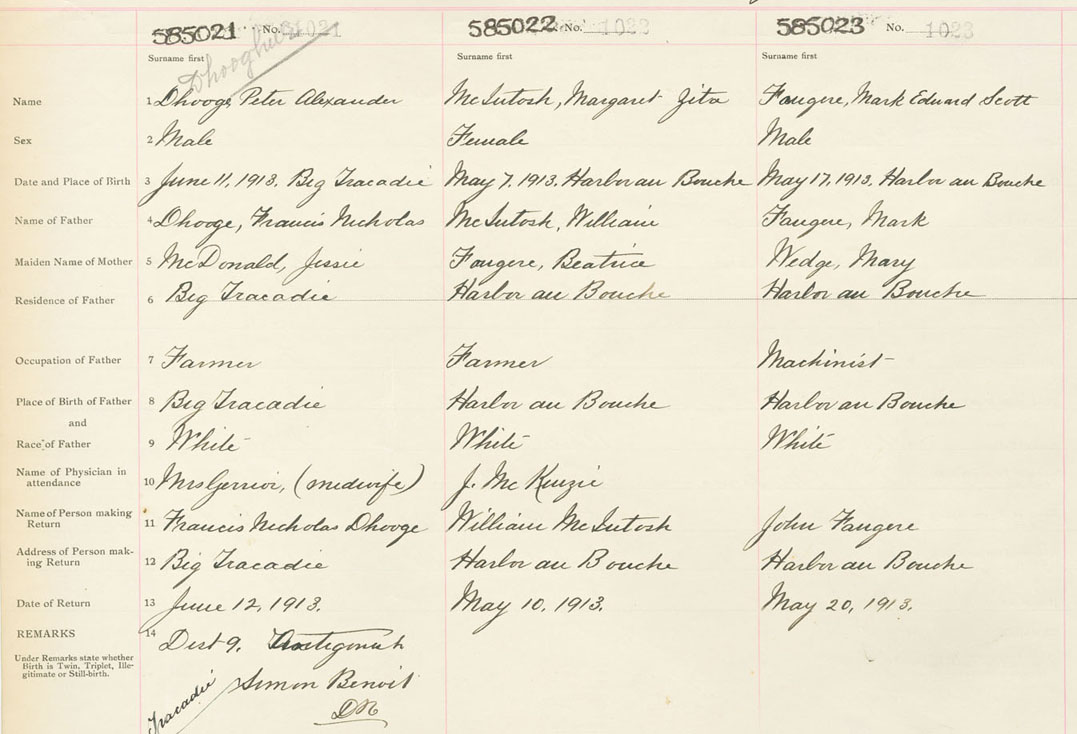 585021 No. 1021 585022 No. 1022 585023 No. 1023
Surname first Surname first Surname first
Name 1 Dhooge, Peter Alexander McIntosh, Margaret Zita Faugere, Mark Edward Scott
Sex 2 Male Female Male
Date and Place of Birth 3 June 11, 1913. Big Tracadie May 7, 1913. Harbor au Bouche May 17, 1913. Harbor au Bouche
Name of Father 4 Dhooge, Francis Nicholas McIntosh, William Faugere, Mark
Maiden Name of Mother 5 McDonald, Jessie Faugere, Beatrice Wedge, Mary
Residence of Father 6 Big Tracadie Harbor au Bouche Harbor au Bouche
Occupation of Father 7 Farmer Farmer Machinist
Place of Birth of Father 8 Big Tracadie Harbor au Bouche Harbor au Bouche
and
Race of Father 9 White White White
Name of Physician in
attendance 10 Mrs Gerrior, (midwife) J. McKinzie
Name of Person making
Return 11 Francis Nicholas Dhooge William McIntosh John Faugere
Address of Person mak-
ing Return 12 Big Tracadie Harbor au Bouche Harbor au Bouche
Date of Return 13 June 12, 1913. May 10, 1913. May 20, 1913.
REMARKS 14 Dist 9. Antigonish
Under Remarks state whether
Birth is Twin, Triplet, Ille-
gitimate or Still-birth.
Tracadie Simon Benoit
DR